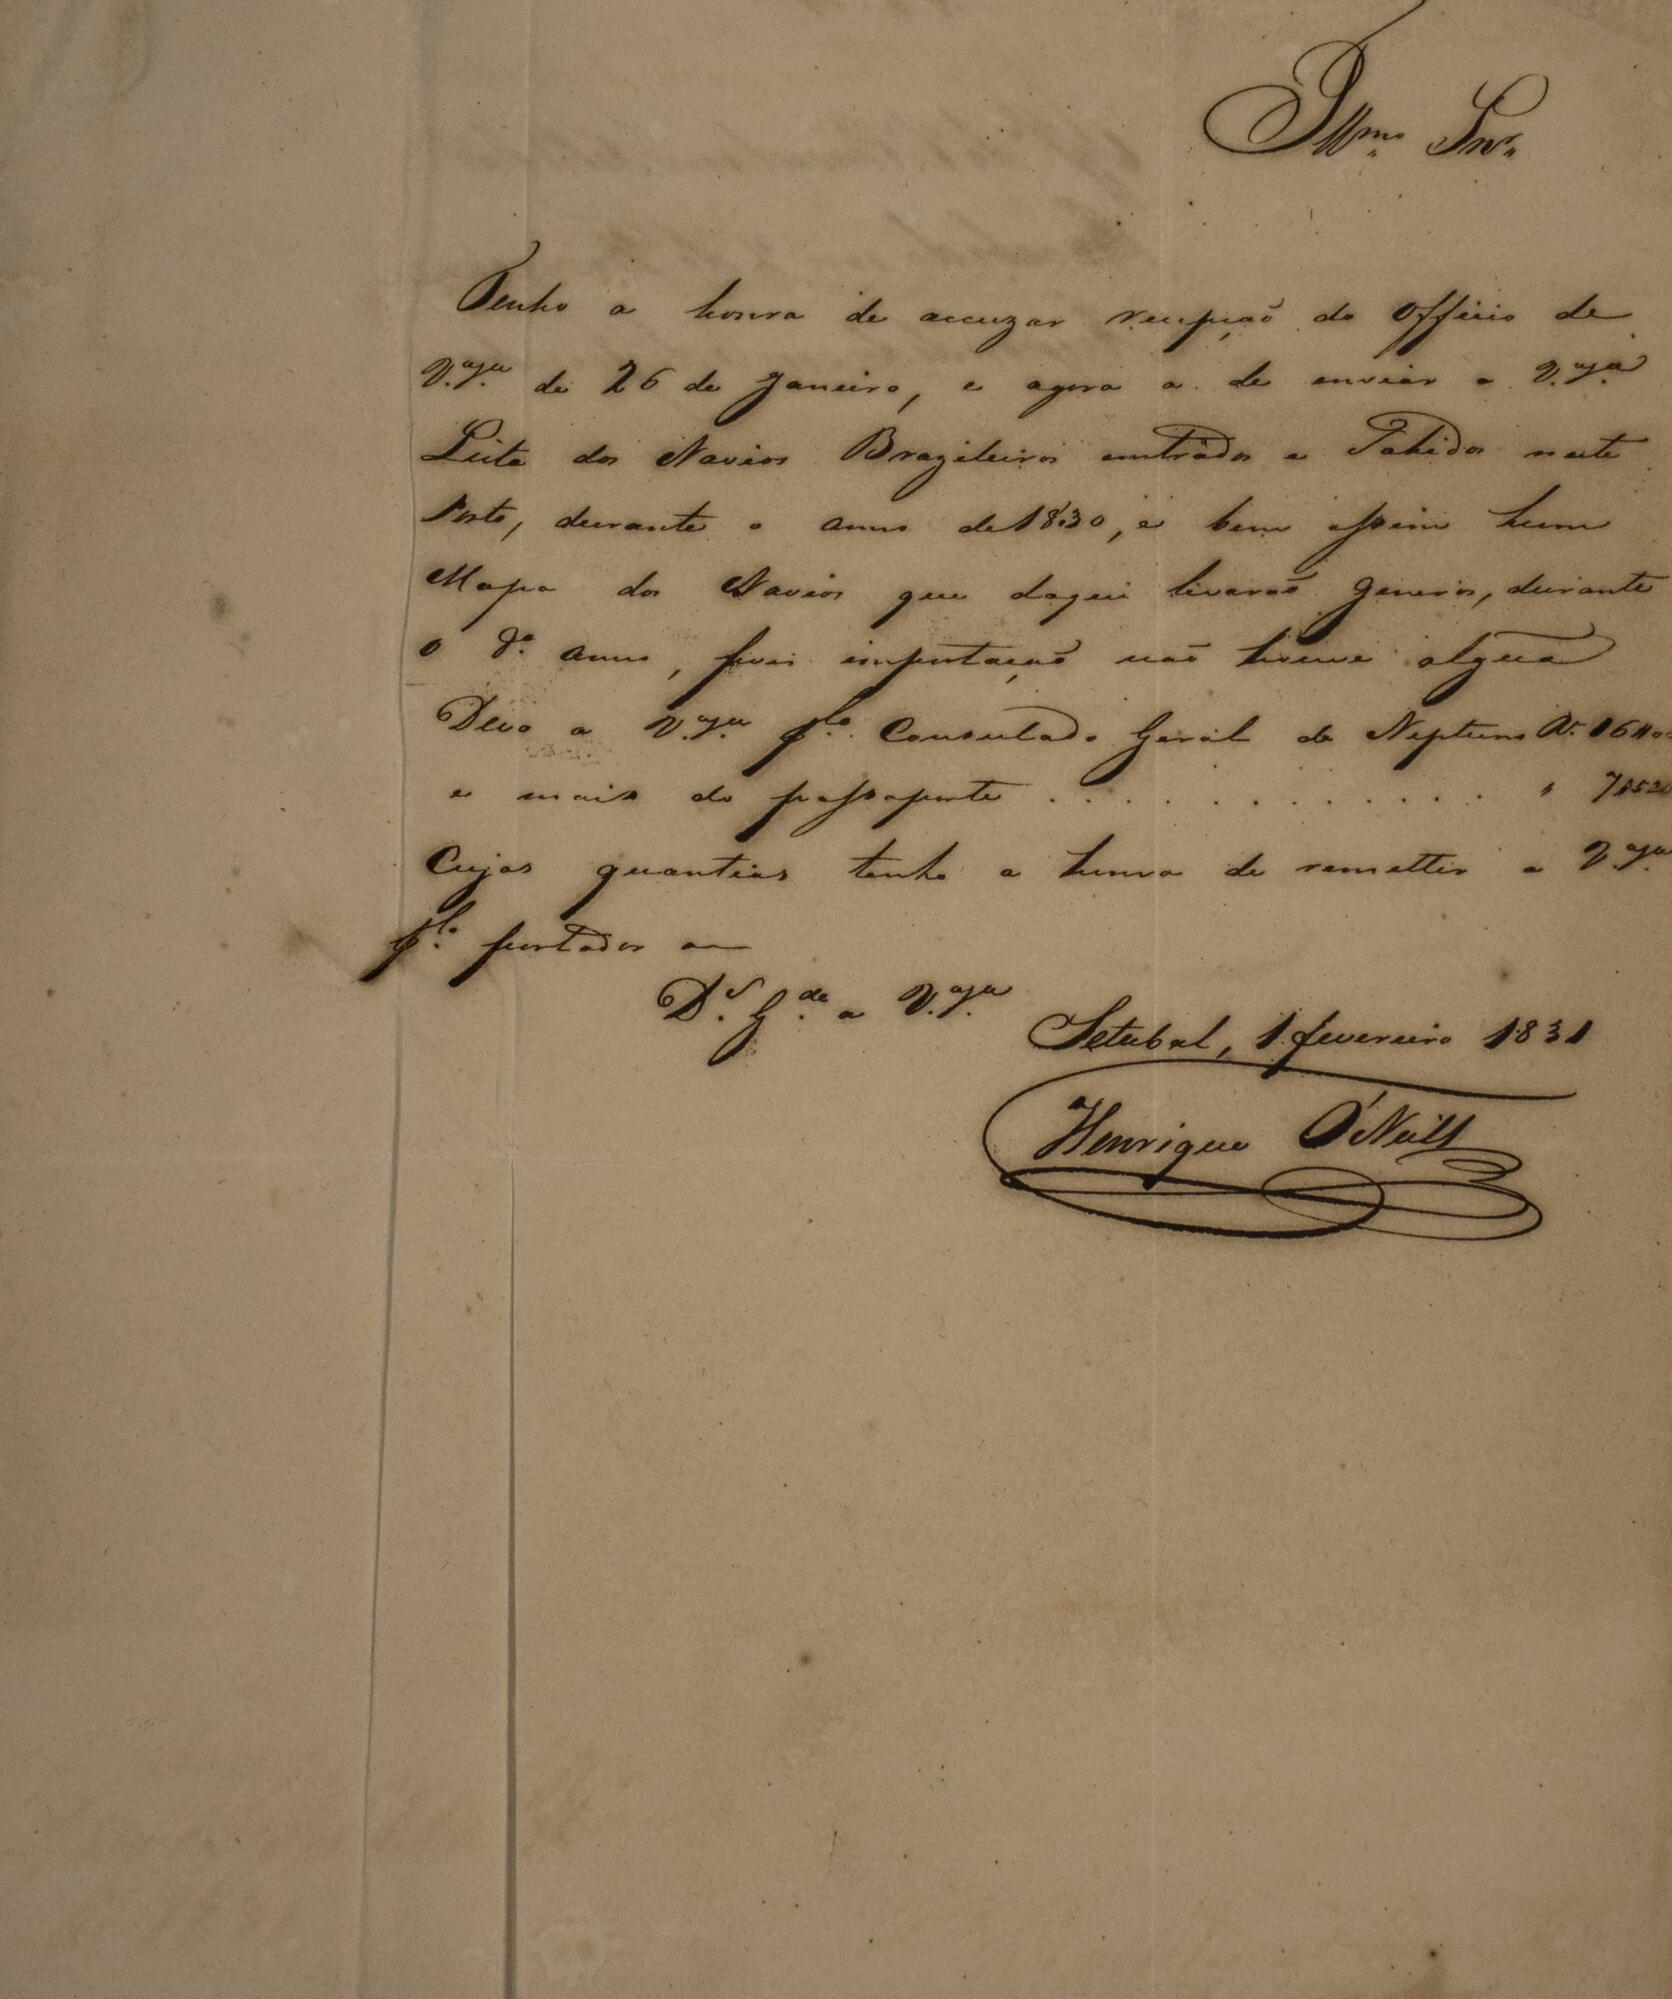 Illmo. Snr.
Tenho a honra de accuzar recepção do Officio de
V.ª Sª de 26 de Janeiro, e agora a de enviar a V.ª Sª
Lista dos Navios Brazileiros emtrados e Sahidos neste
Porto, durante o anno de 1830, e bem assim hum
Mapa dos Navios que daqui livarão generos, durante
o dº. anno, pois importação não houve algua
Devo a V.ª Sª plo. Consulado Geral do Neptuno
e mais do passaporte . . . . . . . . . . . . "
Cujas quantias tenho a honra de remetter a V.ª Sª
plo. portador
Ds. Gde. a V.ª Sª
Setubal, 1 fevereiro 1831
Henrique O'Neill